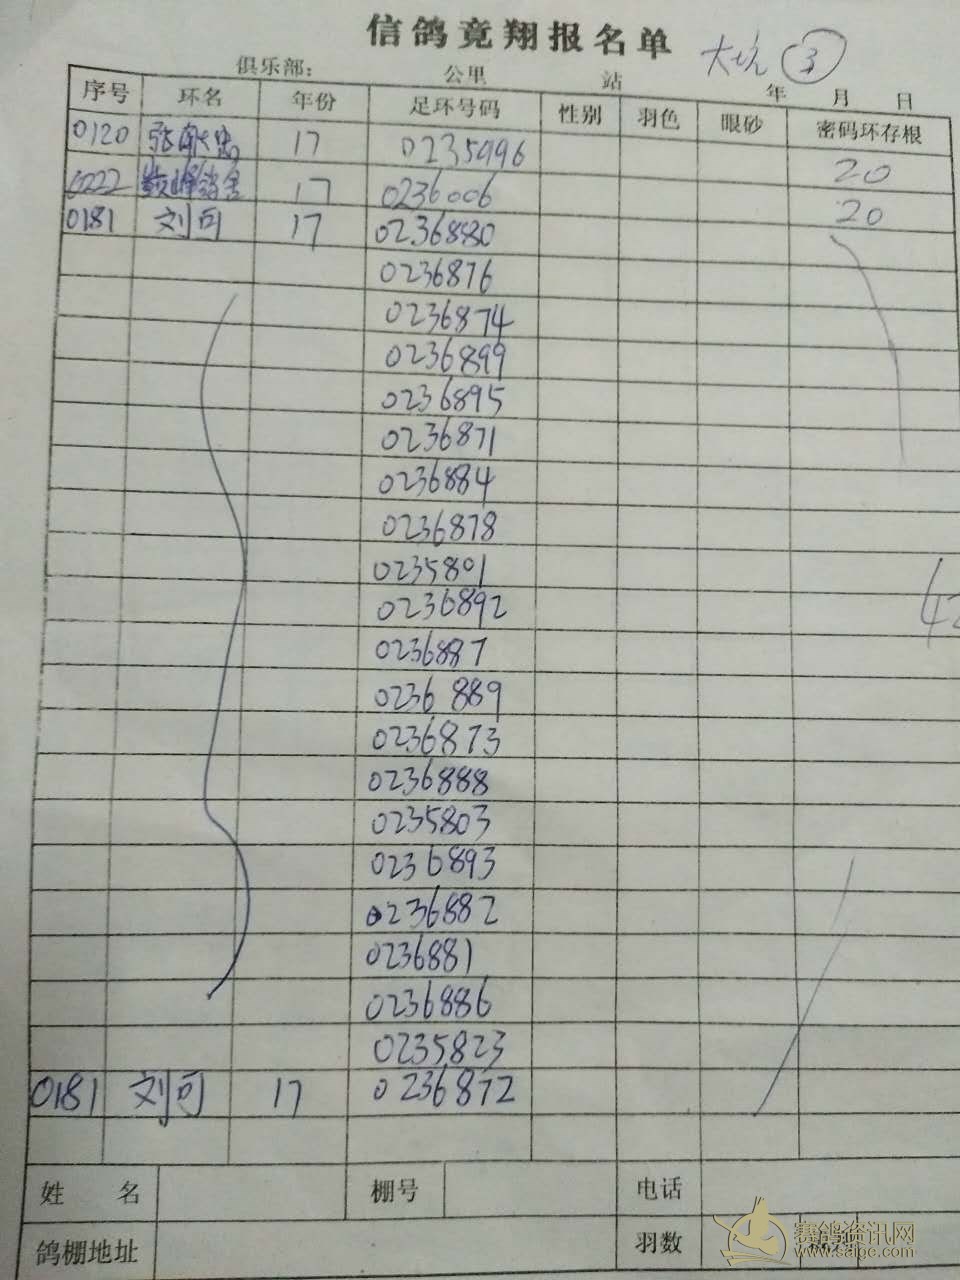 信鸽竞翔报名单 大坑 ③
俱乐部: 公里 站 年 月 日
序号 环名 年份 足环号码 性别 羽色 眼砂 密码环存根
0120 17 0235996 20
0222 17 0236006 20
0181 刘可 17 0236880
0236876
0236874
0236899
0236895
0236871
0236884
0236878
0235801
0236892
0236887
0236889
0236873
0236888
0235803
0236893
0236882
0236881
0236886
0235823
0181 刘可 17 0236872
姓名 棚号 电话
鸽棚地址 羽数
赛鸽资讯网
www.saigc.com